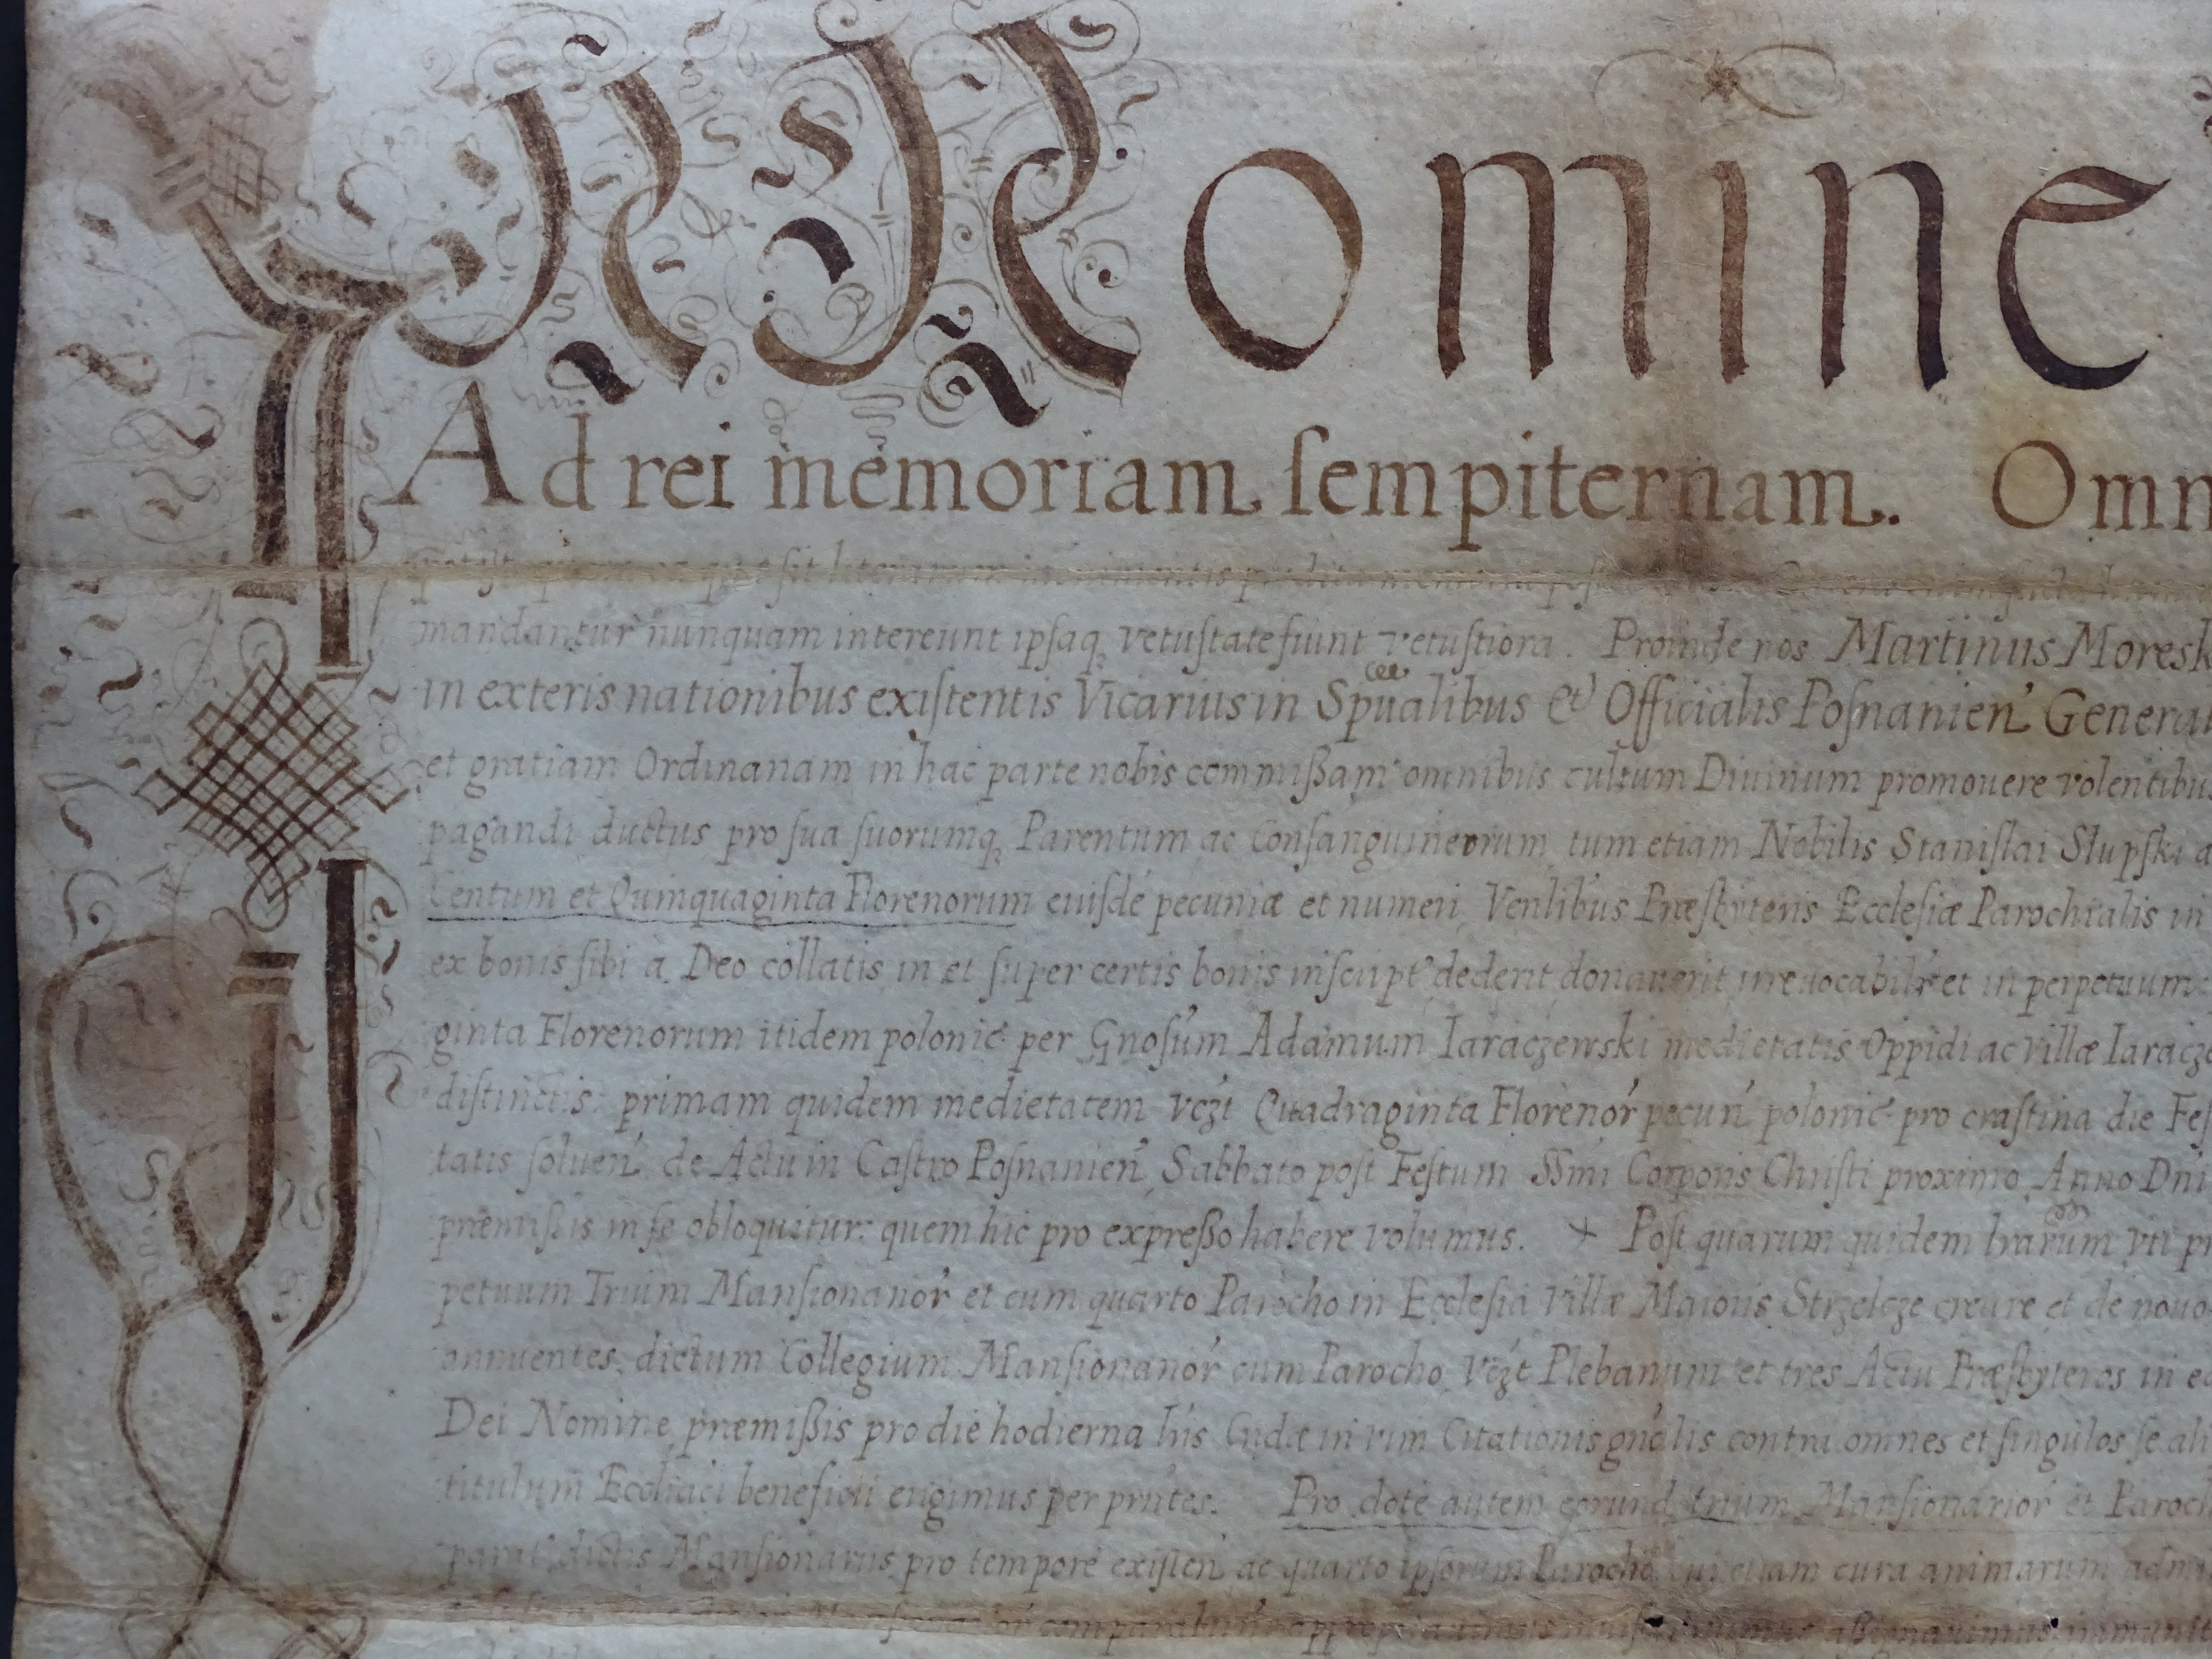 IN Nomine
Ad rei memoriam ſempiternam. Omn
mandantur nunquam intereunt ipſaq, vetuſtate fiunt vetuſtiora. Proinde nos Martinus Moresk
in exteris nationibus exiſtentis Vicarius in Spũalibus et Officialis Poſnanien̄ General
et gratiam Ordinariam in hac parte nobis commißam omnibus cultum Diuinum promouere volentibus
pagandi ductus pro ſua ſuorumq, Parentum ac Conſanguineorum tum etiam Nobilis Staniſlai Słupſki a
Centum et Quinquaginta Florenorum eiuſdē pecuniæ et numeri, Venlibus Præſbyteris Eccleſiæ Parochialis in
ex bonis ſibi a Deo collatis in et ſuper certis bonis inſcript' dederit donauerit irreuocabilr et in perpetuum
ginta Florenorum itidem polonic' per Gnoſum Adamum Iaraczewski medietatis Oppidi ac Villæ Iaracze
diſtinctis: primam quidem medietatem vczt Quadraginta Florenor' pecun̄ polonic' pro craſtina die Feſ
tatis ſoluen̄ de Actu in Caſtro Poſnanien̄ Sabbato poſt Feſtum SSmi Corporis Chriſti proximo Anno Dni
præmiſſis in ſe obloquitur: quem hic pro expreßo habere volumus. + Poſt quarum quidem lrarum vti pr
petuum Trium Manſionarior' et cum quarto Parocho in Eccleſia Villæ Maioris Strzelcze creare et de nouo
annuentes, dictum Collegium Manſionarior' cum Parocho, vczt Plebanum et tres Actu Præſbyteros in ea
Dei Nomine, præmißis pro die hodierna in vim Citationis gnālis contra omnes et ſingulos ſe ali
titulum beneficii erigimus per prn̄tes. Pro dote autem eorund trium Manſionarior' et Paroch
dictis Manſionariis pro tempore exiſten̄ ac quarto ipſorum Parocho cui etiam cura animarum adm